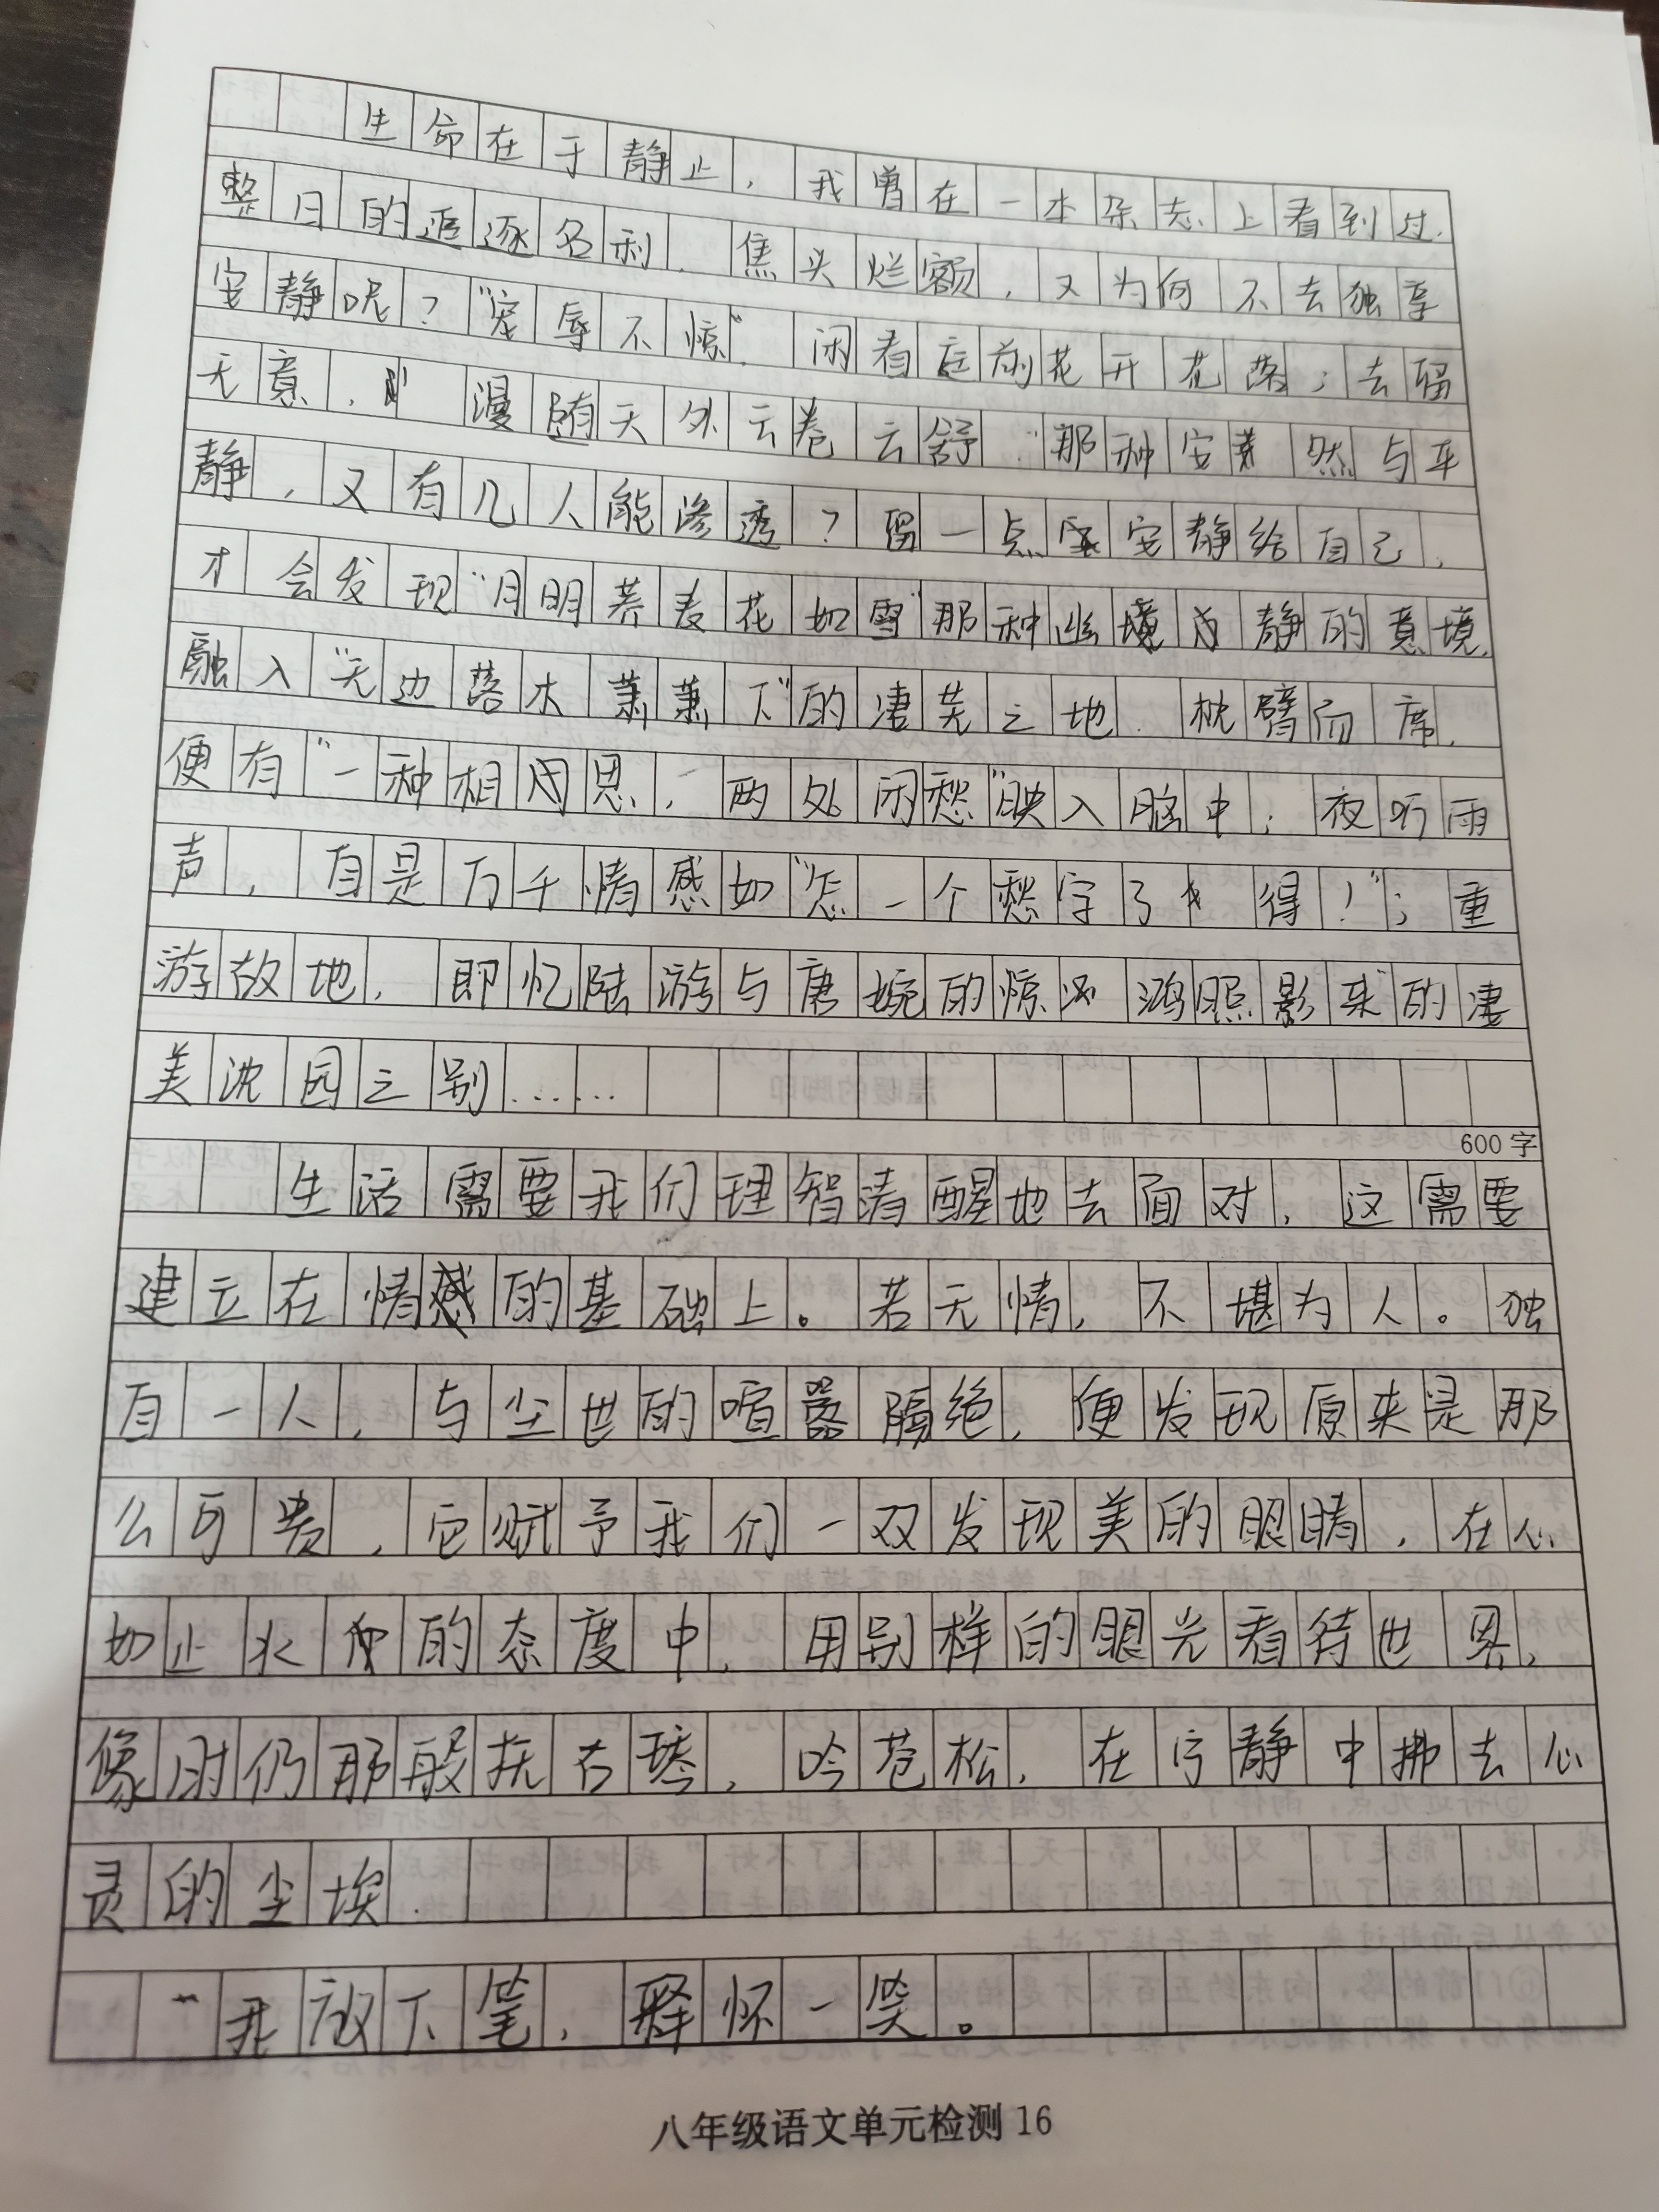 生命在于静止，我曾在一本杂志上看到过.
整日的追逐名利.焦头烂额，又为何不去独享
安静呢？"宠辱不惊".闲看庭前花开花落；去留
无意，漫随天外云卷云舒."那种安然与平
静，又有几人能渗透？留一点安静给自己，
才会发现"月明荞麦花如雪"那种幽静的意境.
融入"无边落木萧萧下"的凄芜之地.枕臂而席.
便有"一种相思，两处闲愁"映入脑中；夜听雨
声，自是万千情感如"怎一个愁字了得！"；重
游故地.即忆陆游与唐婉的惊鸿照影来"的凄
美沈园之别……
600字
生活需要我们理智清醒地去面对，这需要
建立在情感的基础上。若无情，不堪为人。独
自一人，与尘世的喧嚣隔绝，便发现原来是那
么可贵，它赋予我们一双发现美的眼睛，在心
如止水的态度中，用别样的眼光看待世界，
像那般抚古琴，吟苍松，在宁静中拂去心
灵的尘埃.
我放下笔，释怀一笑。
八年级语文单元检测16